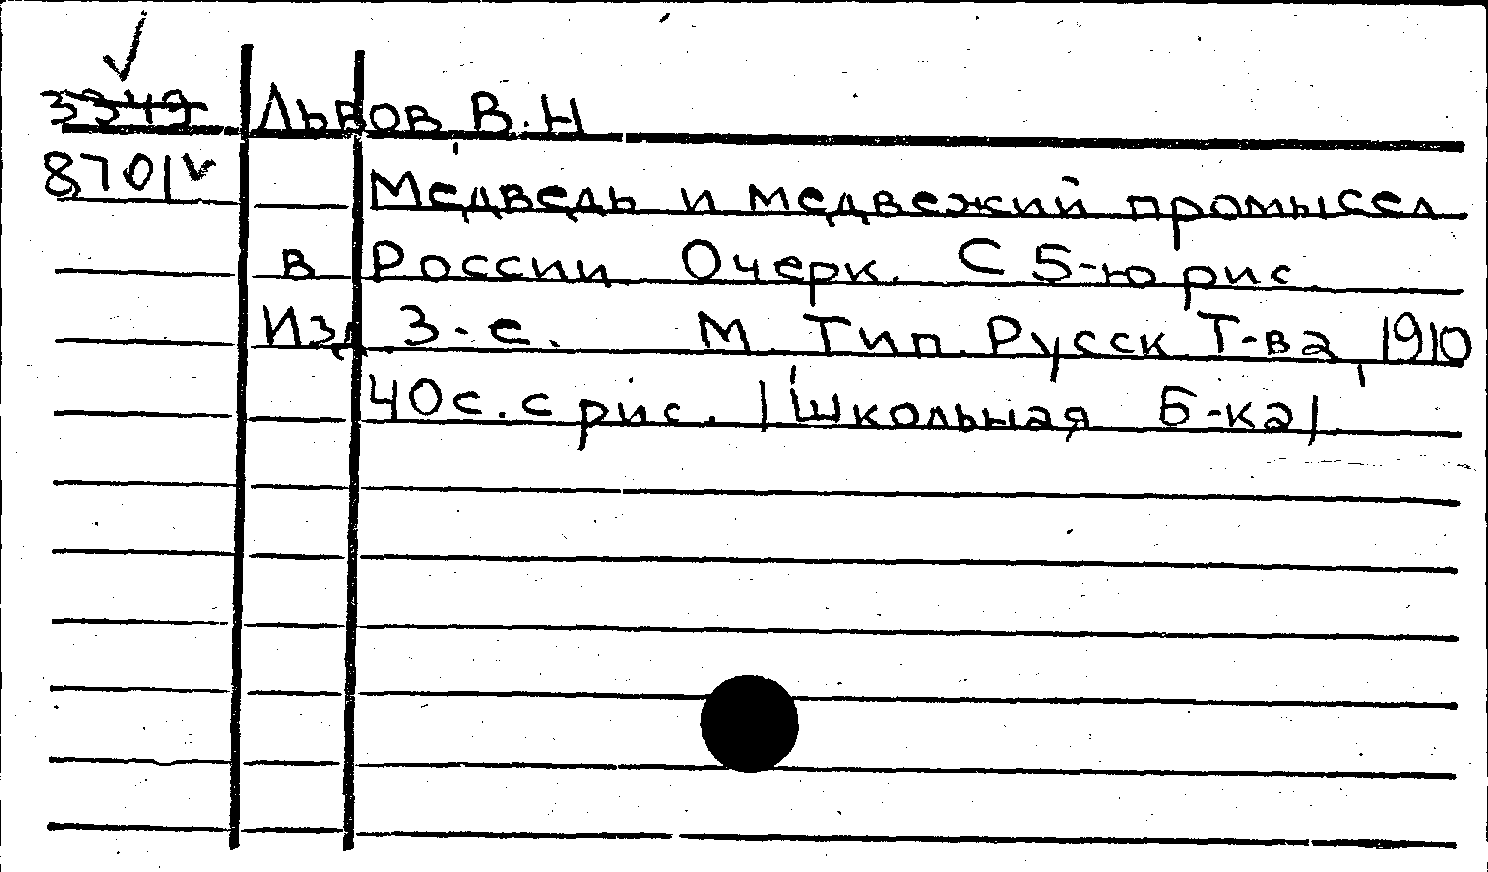 3349 Львов В.Н
8701 Медведь и медвежий промысел
в России Очерк. С 5-ю рис.
Изд. 3-е. М. Тип. Русск. Т-ва, 1910
40 с. с рис. |Школьная Б-ка|